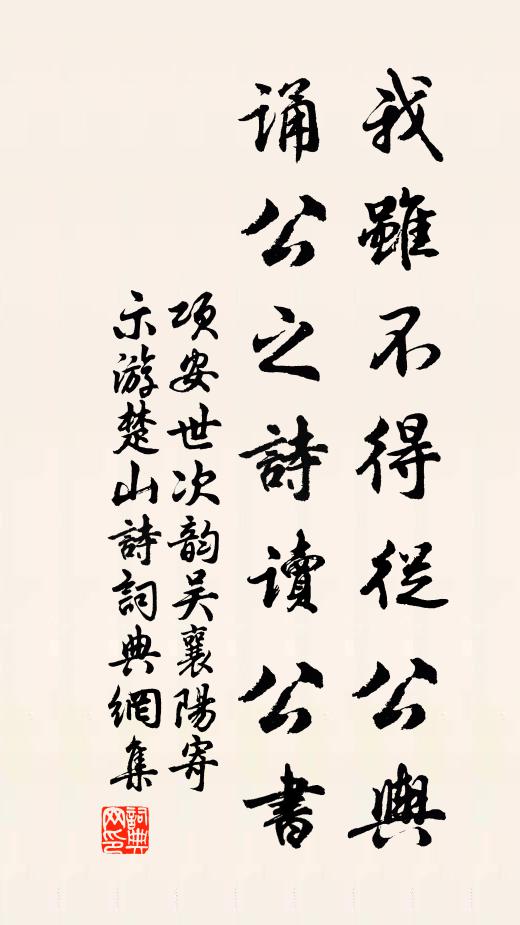 我雖不得從公輿
誦公之詩读公書
項安世次韵吴襄陽寄
示游楚山詩詞典網集
詞典網印